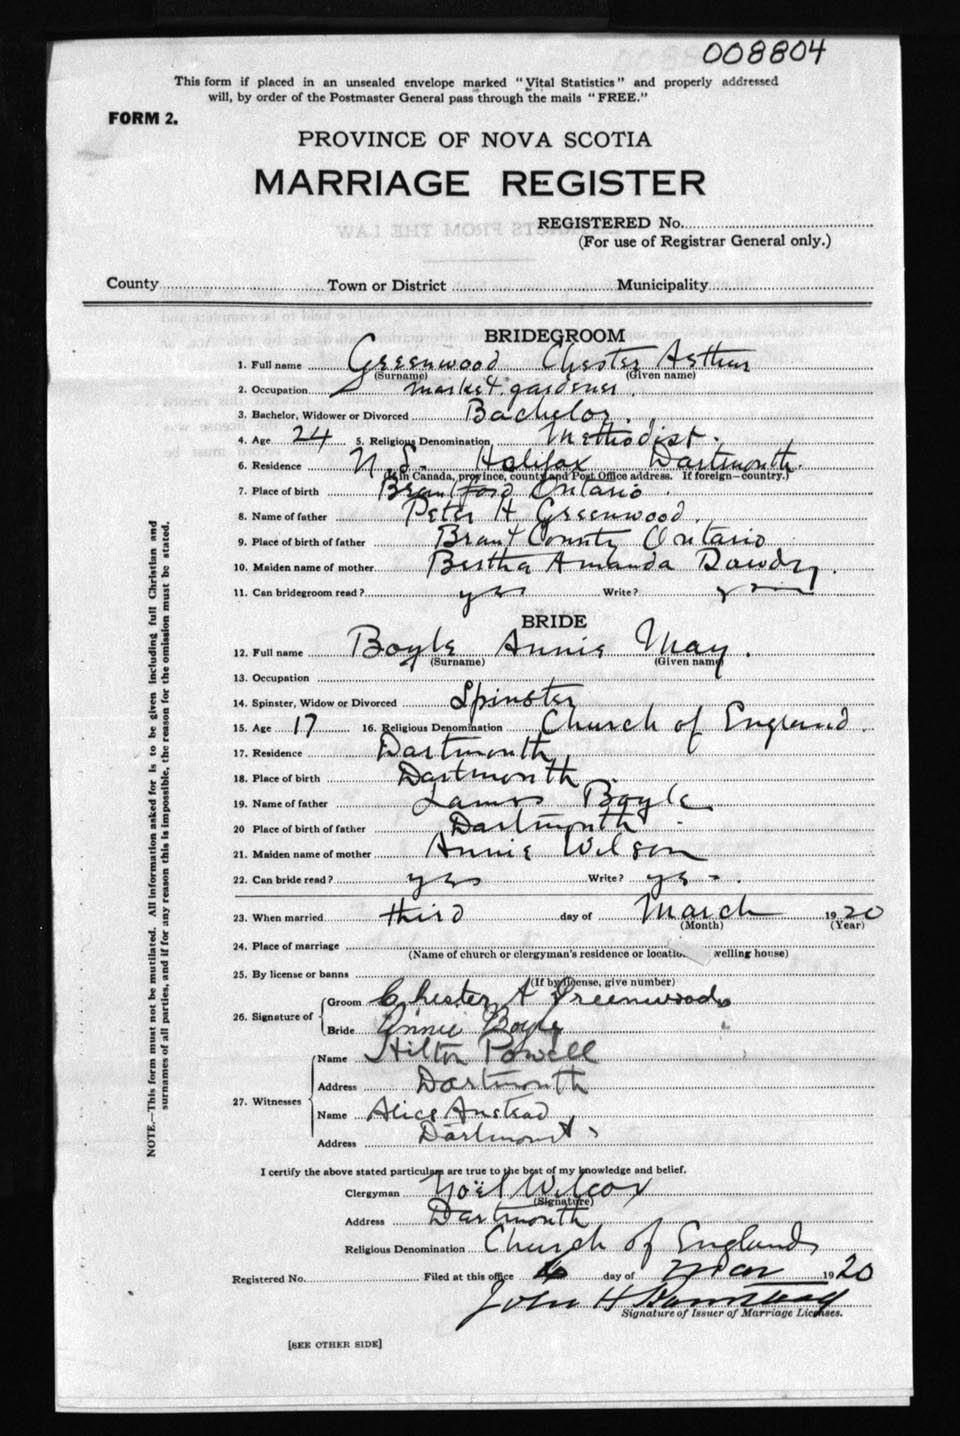 008804
This form if placed in an unsealed envelope marked "Vital Statistics" and properly addressed
will, by order of the Postmaster General pass through the mails "FREE."
FORM 2.
PROVINCE OF NOVA SCOTIA
MARRIAGE REGISTER
REGISTERED No.
(For use of Registrar General only.)
County Town or District Municipality
BRIDEGROOM
1. Full name Greenwood Chester Arthur
(Surname) (Given name)
2. Occupation market gardener.
3. Bachelor, Widower or Divorced Bachelor.
4. Age 24 5. Religious Denomination Methodist.
6. Residence N.S. Halifax Dartmouth.
(If in Canada, province, county and Post Office address. If foreign—country.)
7. Place of birth Brantford Ontario.
8. Name of father Peter H Greenwood.
9. Place of birth of father Brant County Ontario
10. Maiden name of mother Bertha Amanda Dowdy.
11. Can bridegroom read? yes Write? yes
BRIDE
12. Full name Boyle Annie May.
(Surname) (Given name)
13. Occupation
14. Spinster, Widow or Divorced Spinster
15. Age 17 16. Religious Denomination Church of England.
17. Residence Dartmouth
18. Place of birth Dartmouth.
19. Name of father James Boyle
20 Place of birth of father Dartmouth.
21. Maiden name of mother Annie Wilson
22. Can bride read? yes Write? yes.
23. When married third day of March 1920
(Month) (Year)
24. Place of marriage
(Name of church or clergyman's residence or location welling house)
25. By license or banns
(If by license, give number)
26. Signature of Groom Chester A Greenwood
Bride Annie Boyle
27. Witnesses Name Hilton Powell
Address Dartmouth
Name Alice Anstead
Address Dartmouth
I certify the above stated particulars are true to the best of my knowledge and belief.
Clergyman Noël Wilcox
(Signature)
Address Dartmouth
Religious Denomination Church of England
Registered No. Filed at this office day of Mar 1920
John H
Signature of Issuer of Marriage Licenses.
[SEE OTHER SIDE]
NOTE.—This form must not be mutilated. All information asked for is to be given including full Christian and
surnames of all parties, and if for any reason this is impossible, the reason for the omission must be stated.